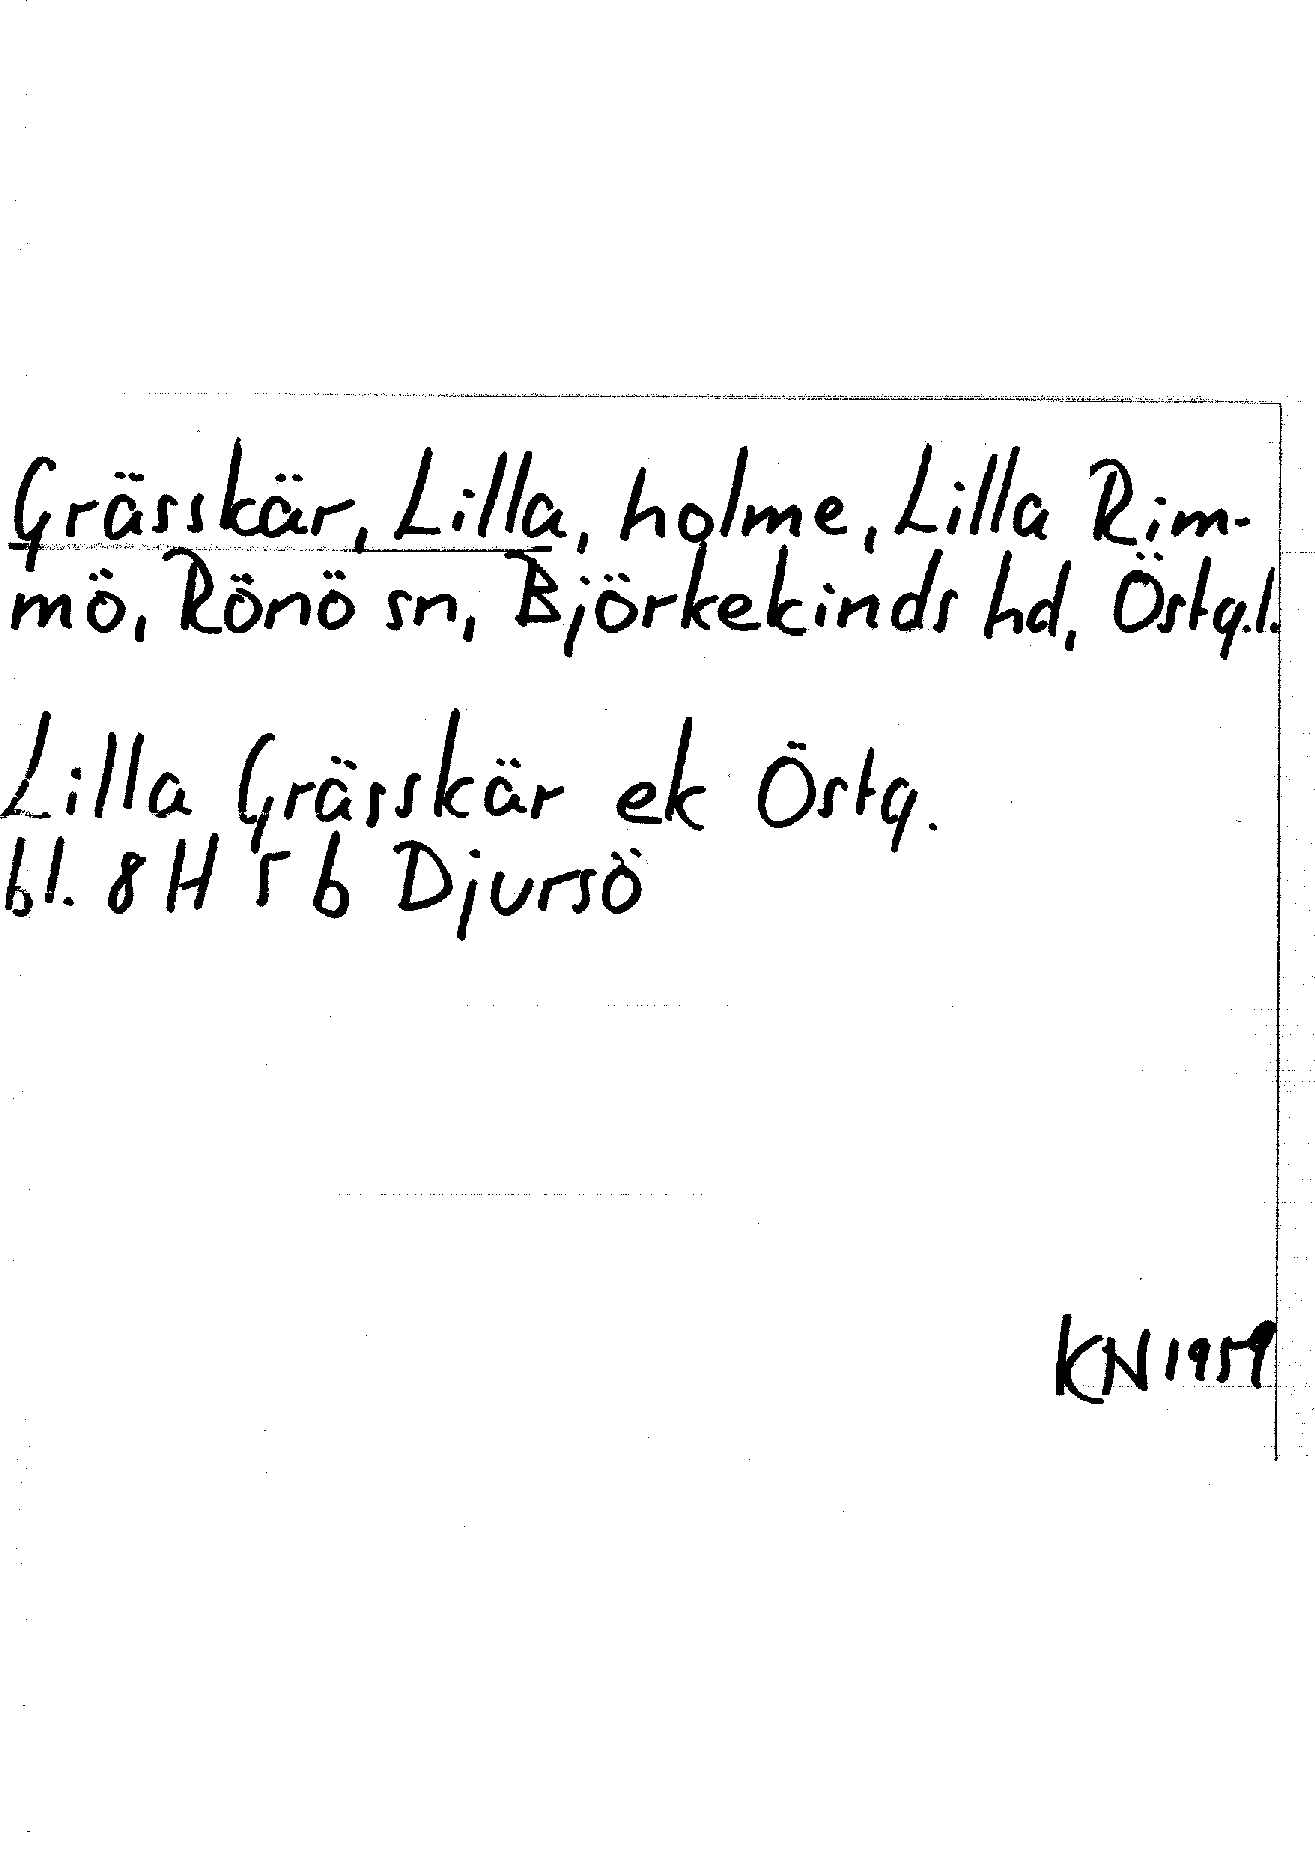 Grässkär, Lilla, holme, Lilla Rim-
mö, Rönö sn, Björkekinds hd, Östg.l.
Lilla Grässkär ek Östg.
bl. 8H 5 b Djursö
KN 1959